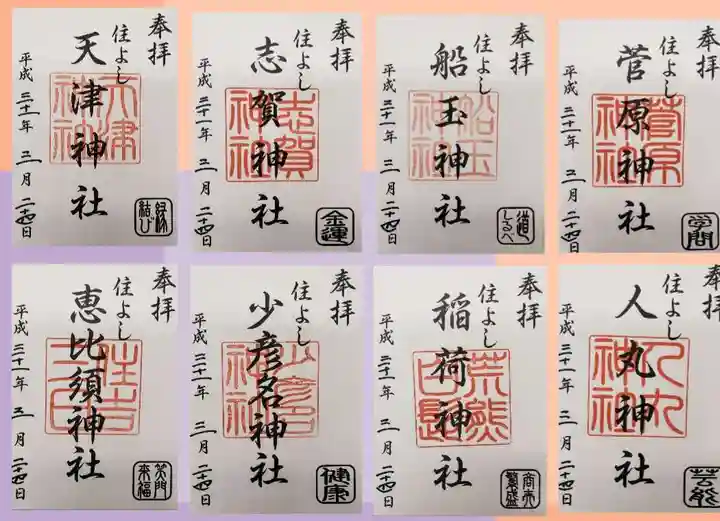 奉拝
住よし
天津神社
天津神社
平成三十一年三月二十四日
縁結び
奉拝
住よし
志賀神社
志賀神社
平成三十一年三月二十四日
金運
奉拝
住よし
船玉神社
船玉神社
平成三十一年三月二十四日
道しるべ
奉拝
住よし
菅原神社
菅原神社
平成三十一年三月二十四日
学問
奉拝
住よし
恵比須神社
平成三十一年三月二十四日
笑門来福
奉拝
住よし
少彦名神社
平成三十一年三月二十四日
健康
奉拝
住よし
稲荷神社
平成三十一年三月二十四日
商売繁盛
奉拝
住よし
人丸神社
人丸神社
平成三十一年三月二十四日
芸能